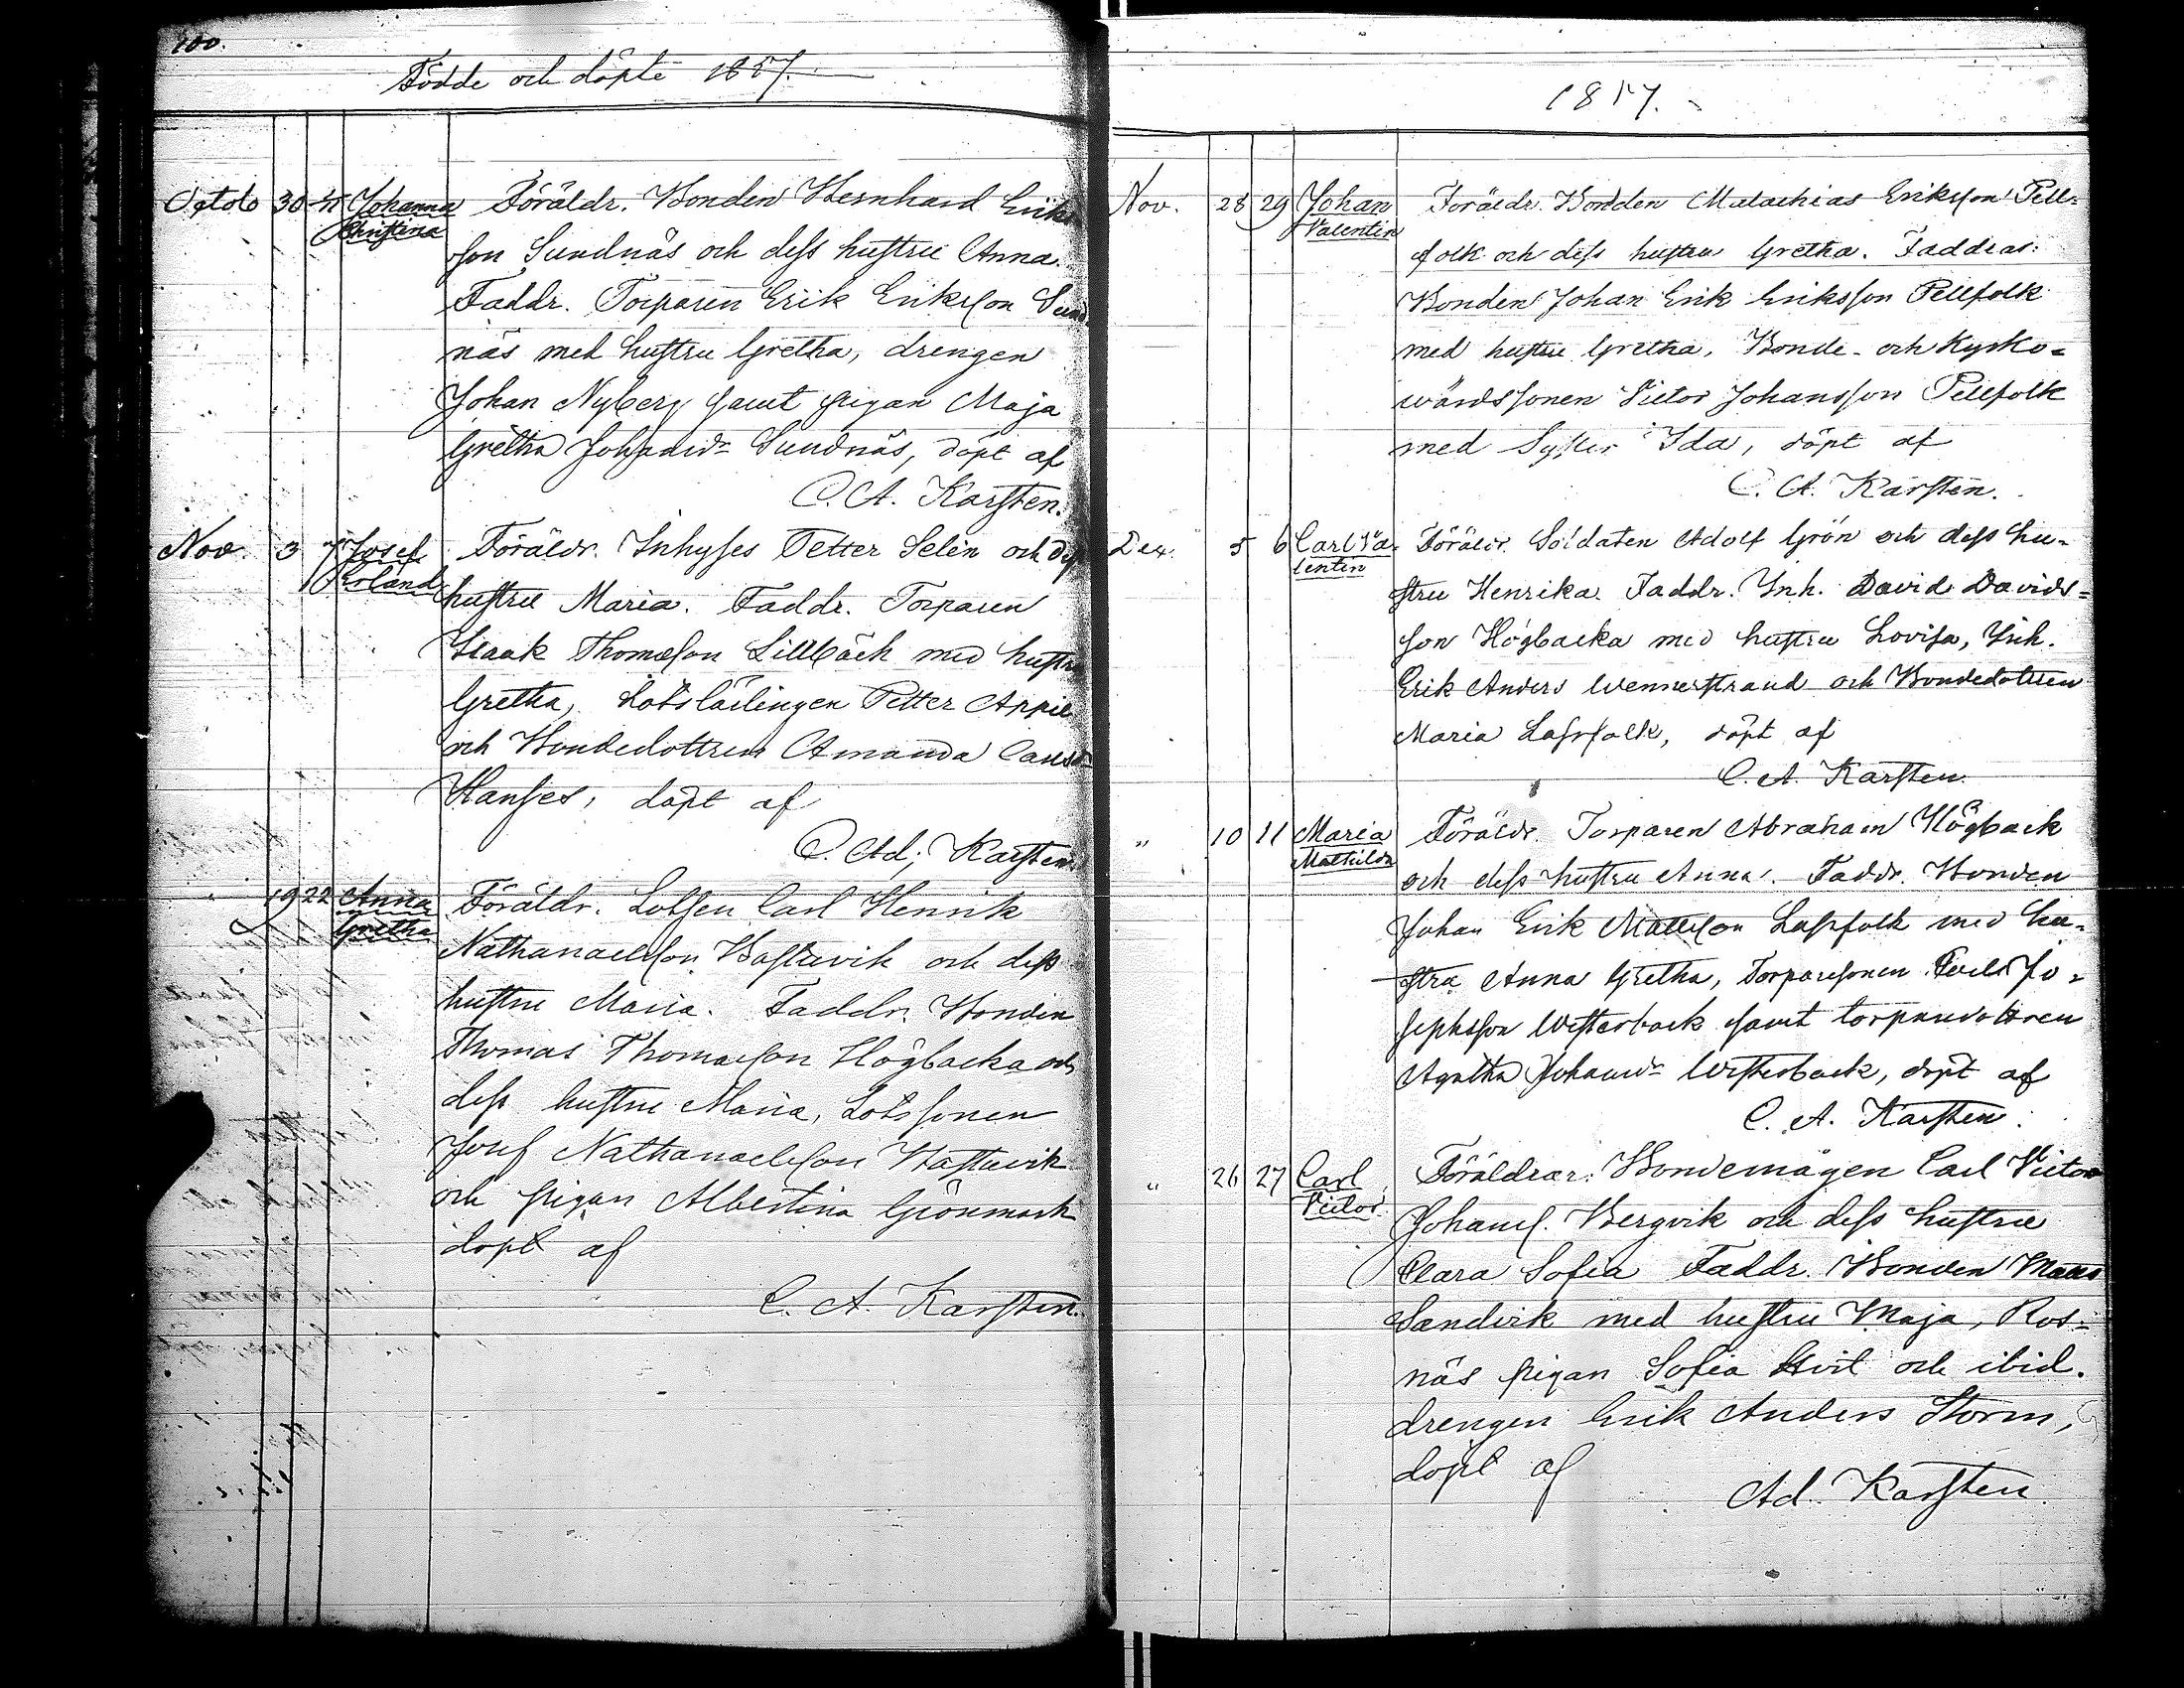 100.
Födde och döpte 1887.
Octob 30 Johanna Föräldr. Bonden Bernhard Eriks
Christina son Sundnäs och dess hustru Anna.
Faddr. Torparen Erik Eriksson Sund
näs med hustru Gretha, drengen
Johan Nyberg samt pigan Maja
Gretha Johansdr Sundnäs, döpt af
C. A. Karsten.
Nov. 3 7 Josef Föräldr. Inhyses Petter Selén och dess
Erland hustru Maria. Faddr. Torparen
Isaak Thomasson Lillbäck med hustru
Gretha, Lotslärlingen Petter Appel
och Bondedottren Amanda Carlsdr
Hanses, döpt af
C. Ad; Karsten.
" 19 22 Anna Föräldr. Lotsen Carl Henrik
Gretha Nathanaelsson Bastuvik och dess
hustru Maria. Faddr. Bonden
Thomas Thomasson Högbacka och
dess hustru Maria, Lotssonen
Josef Nathanaelsson Bastuvik
och pigan Albertina Grönmark
döpt af
C. A. Karsten.
1887.
Nov. 28 29 Johan Föräldr. Bonden Malachias Eriksson Pell-
Valentin folk och dess hustru Gretha. Faddrar:
Bonden Johan Erik Eriksson Pellfolk
med hustru Gretha, Bonde- och Kyrko-
wärdssonen Victor Johansson Pellfolk
med Syster Ida, döpt af
C. A. Karsten.
Dec. 5 6 Carl Va- Föräldr. Soldaten Adolf Grön och dess hu-
lentin stru Henrika. Faddr. Inh. David Davids-
son Högbacka med hustru Lovisa, Inh.
Erik Anders Wennerstrand och Bondedottren
Maria Lassfolk, döpt af
C. A. Karsten.
" 10 11 Maria Föräldr. Torparen Abraham Högback
Mathilda och dess hustru Anna. Faddr. Bonden
Johan Erik Mattsson Lassfolk med hu-
stru Anna Gretha, Torparesonen Joels Jo-
sephsson Westerback samt torparedottren
Agatha Johansdr Westerback, döpt af
C. A. Karsten.
" 26 27 Carl Föräldrar: Bondemågen Carl Victor
Victor Johanss. Bergvik och dess hustru
Clara Sofia Faddr. Bonden Matts
Sandvik med hustru Maja, Ros-
näs pigan Sofia Kvist och ibid.
drengen Erik Anders Storm,
döpt af
Ad. Karsten.